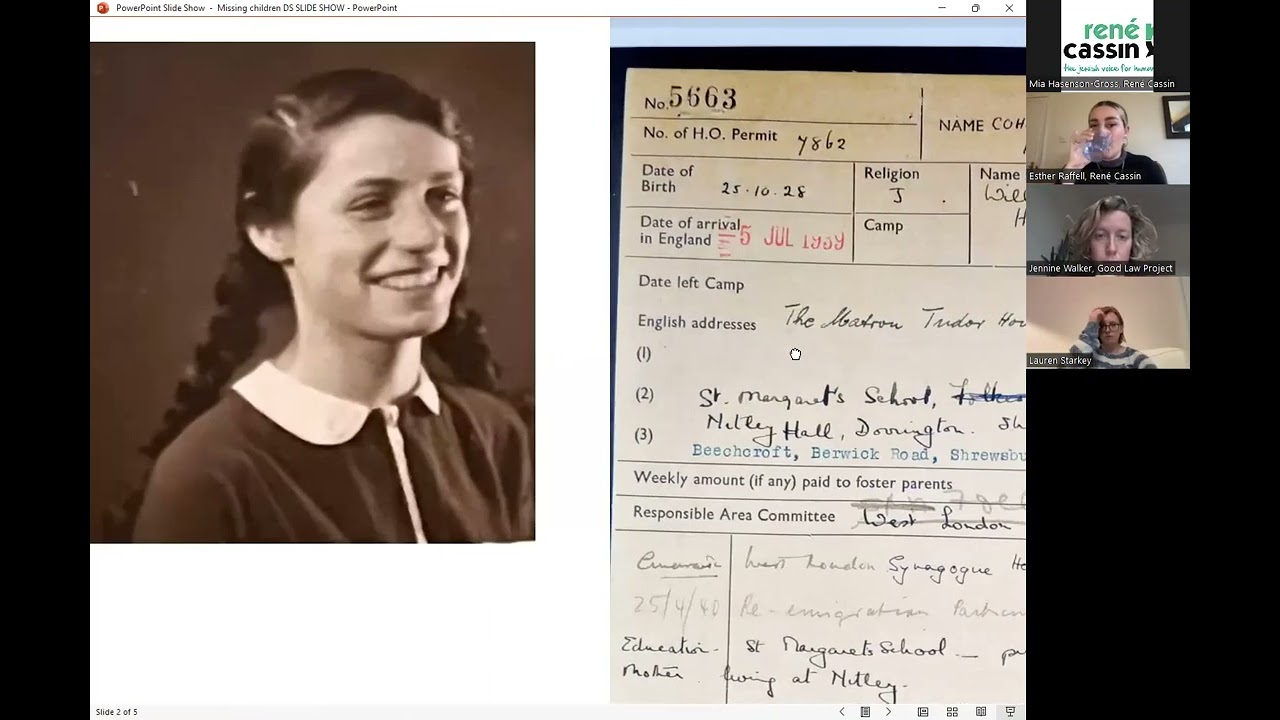 PowerPoint Slide Show - Missing children DS SLIDE SHOW - PowerPoint
No. 5663
No. of H.O. Permit 7862
NAME COH
Date of Birth 25.10.28
Religion J.
Name
Date of arrival in England 5 JUL 1939
Camp
Date left Camp
English addresses The Matron Tudor Hou
(1)
(2) St. Margaret's School,
Netley Hall, Dorrington. Sh
(3)
Beechcroft, Berwick Road, Shrewsbu
Weekly amount (if any) paid to foster parents
Responsible Area Committee West London
West London Synagogue
25/4/40 Re-emigration
Education - St Margarets School - p
Mother living at Netley.
Slide 2 of 5
rené
cassin
the jewish voice for human
Mia Hasenson-Gross, René Cassin
Esther Raffell, René Cassin
Jennine Walker, Good Law Project
Lauren Starkey